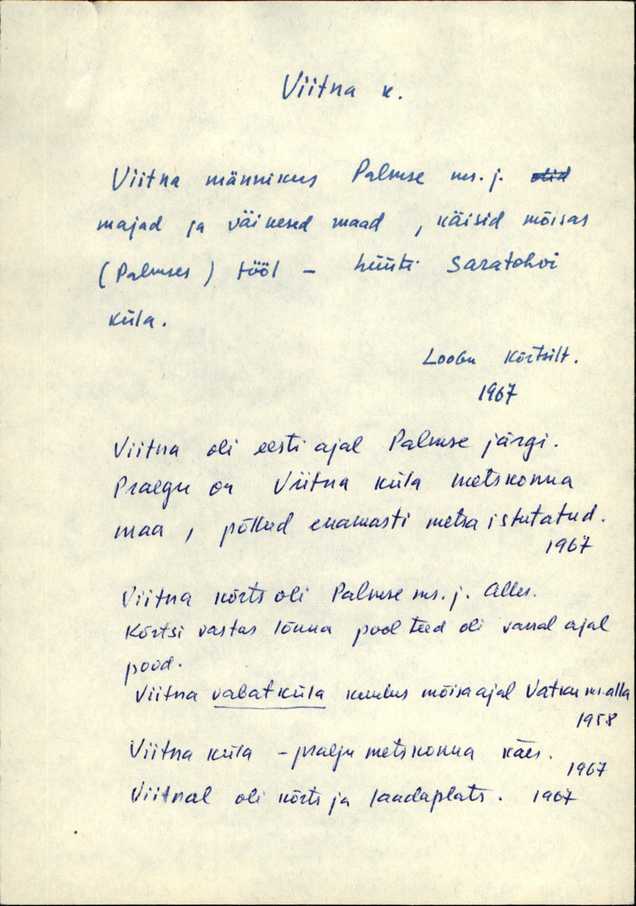 Viitna k.
Viitna männikus Palmse ms. j. olid
majad ja väikesed maad, käisid mõisas
(Palmses) tööl – hüüti Saratohvi
küla.
Loobu Kõrtsilt.
1967
Viitna oli eesti ajal Palmse järgi.
Praegu on Viitna küla metskonna
maa, põllud enamasti metsa istutatud.
1967
Viitna kõrts oli Palmse ms. j. alles.
Kõrtsi vastas lõuna pool teed oli vanal ajal
pood.
Viitna vabatküla kuulus mõisa ajal Vatku ms. alla
1958
Viitna küla – praegu metskonna käes.
1967
Viitnal oli kõrts ja laadaplats. 1967